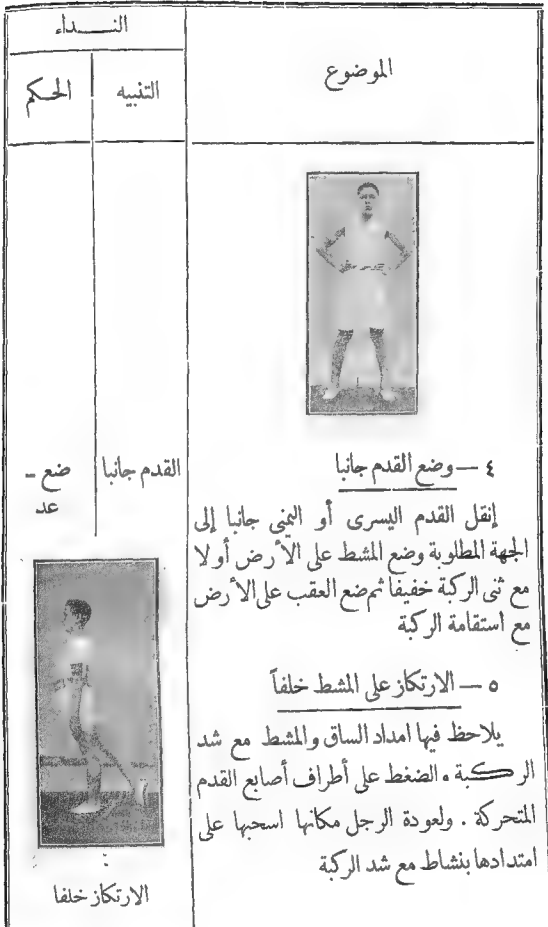 النـــداء
الموضوع
التنبيه
الحكم
٤ — وضع القدم جانبا
القدم جانبا
ضع -
عد
إنقل القدم اليسرى أو اليمنى جانبا إلى
الجهة المطلوبة وضع المشط على الأرض أولا
مع ثنى الركبة خفيفا ثم ضع العقب على الأرض
مع استقامة الركبة
٥ — الارتكاز على المشط خلفاً
يلاحظ فيها امداد الساق والمشط مع شد
الركبة . الضغط على أطراف أصابع القدم
المتحركة . ولعودة الرجل مكانها اسحبها على
امتدادها بنشاط مع شد الركبة
الارتكاز خلفا